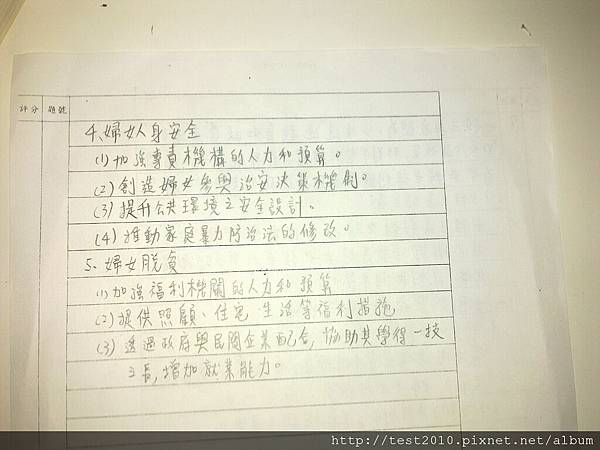 評分 題號
4、婦女人身安全
(1)加強專責機構的人力和預算。
(2)創造婦女參與治安決策機制。
(3)提升公共環境之安全設計。
(4)推動家庭暴力防治法的修改。
5、婦女脫貧
(1)加強福利機關的人力和預算
(2)提供照顧、住宅、生活等福利措施
(3)透過政府與民間企業配合,協助其學得一技
之長,增加就業能力。
http://test2010.pixnet.net/album